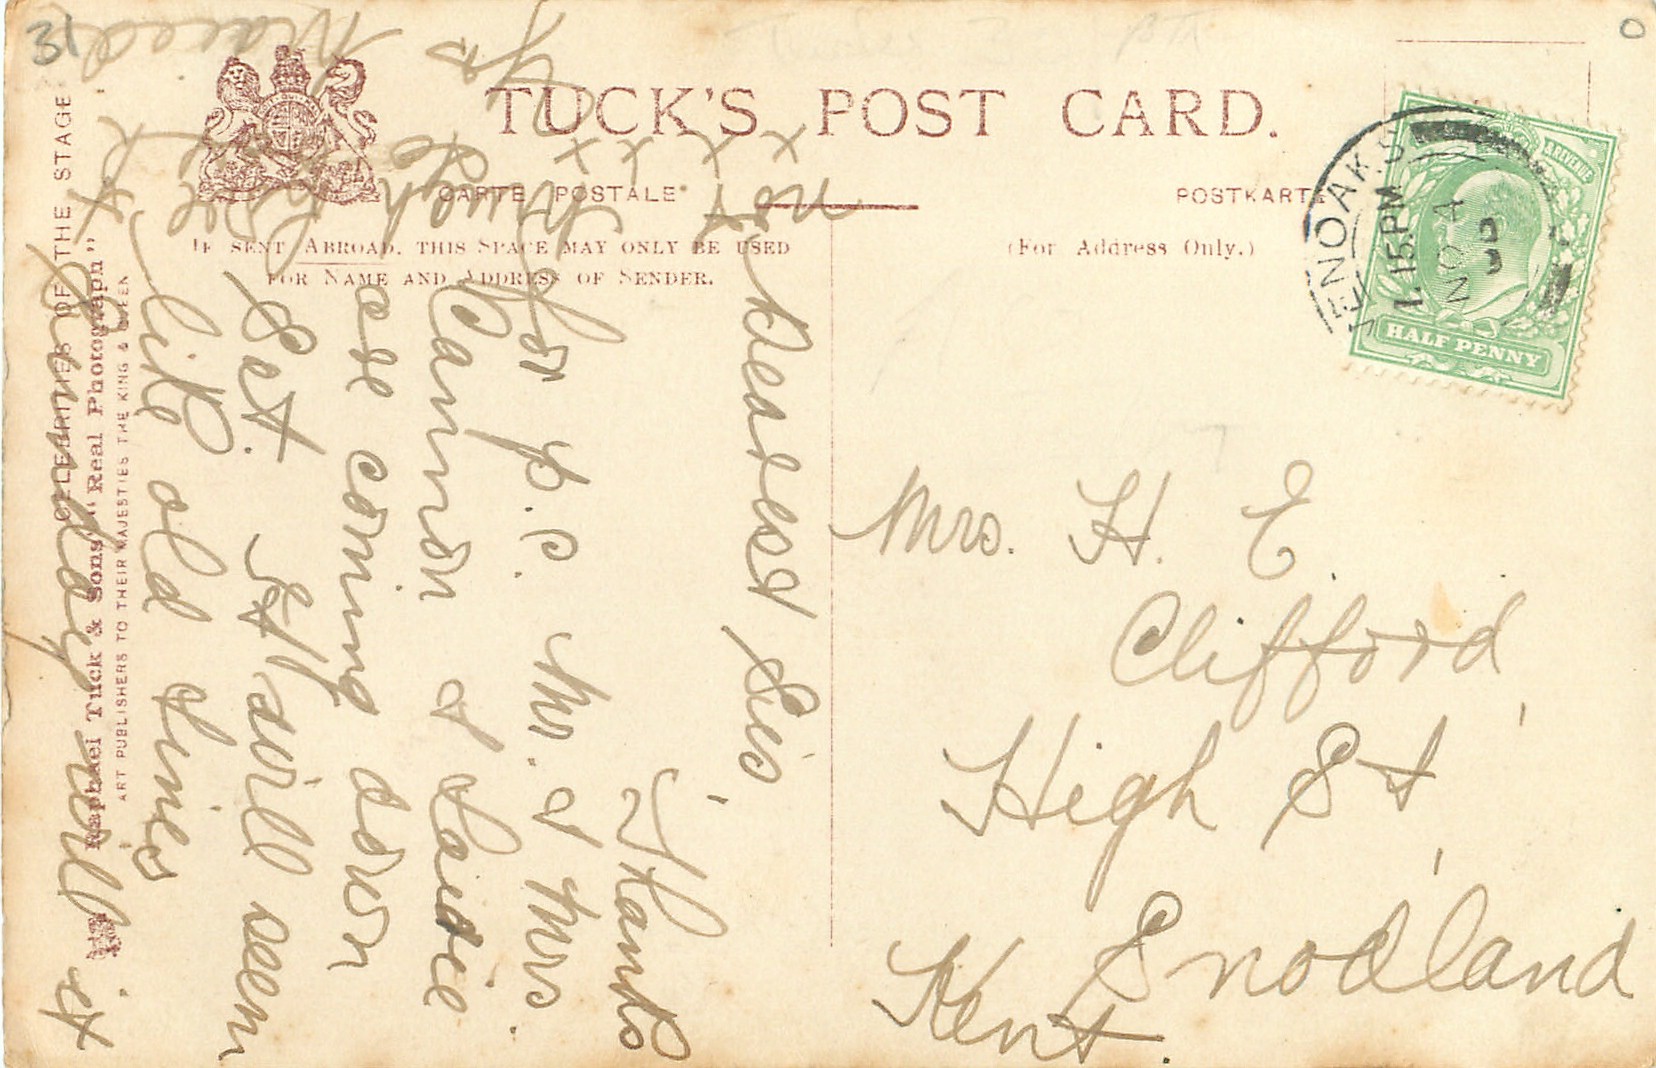 31
0
TUCK'S POST CARD.
CARTE POSTALE
POSTKARTE
IF SENT ABROAD, THIS SPACE MAY ONLY BE USED
FOR NAME AND ADDRESS OF SENDER.
(For Address Only.)
CELEBRITIES OF THE STAGE
Raphael Tuck & Sons "Real Photograph"
ART PUBLISHERS TO THEIR MAJESTIES THE KING & QUEEN
& REVENUE
HALF PENNY
ENOAKS
1.15PM
NO 4
Dearest Sis,
Thanks
for p.c. Mr. & Mrs.
Cannon &
are coming down
Sat. It will seem
like old times
Sunday will it
not
much
x x x x
Mrs. H. E.
Clifford,
High St,
Snodland
Kent.